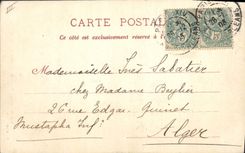 CARTE POSTALE
Ce côté est exclusivement réservé à
Mademoiselle Inès Sabatier
chez Madame
26 rue Edgar Quinet
Mustapha Inf:
Alger